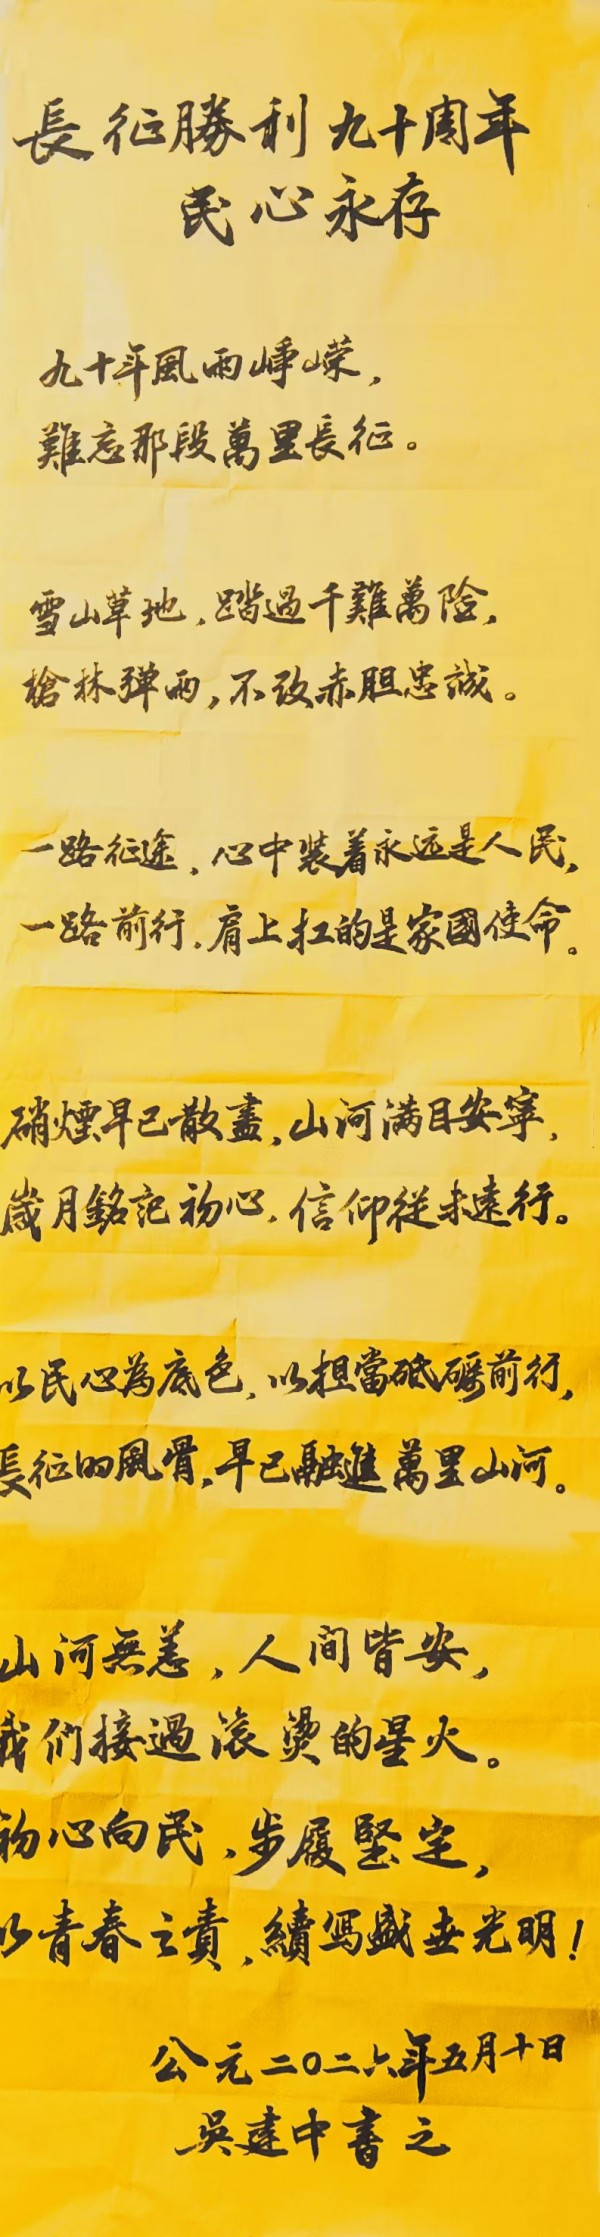 長征勝利九十周年
民心永存
九十年風雨崢嶸，
難忘那段萬里長征。
雪山草地，踏過千難萬险，
槍林弹雨，不改赤胆忠誠。
一路征途，心中裝着永远是人民，
一路前行，肩上扛的是家國使命。
硝煙早已散盡，山河满目安寧，
歲月銘記初心，信仰從未遠行。
以民心為底色，以担當砥礪前行，
長征的風骨，早已融進萬里山河。
山河無恙，人間皆安，
我们接過滚燙的星火。
初心向民，步履堅定，
以青春之責，續寫盛世光明！
公元二〇二六年五月十日
吳建中書之